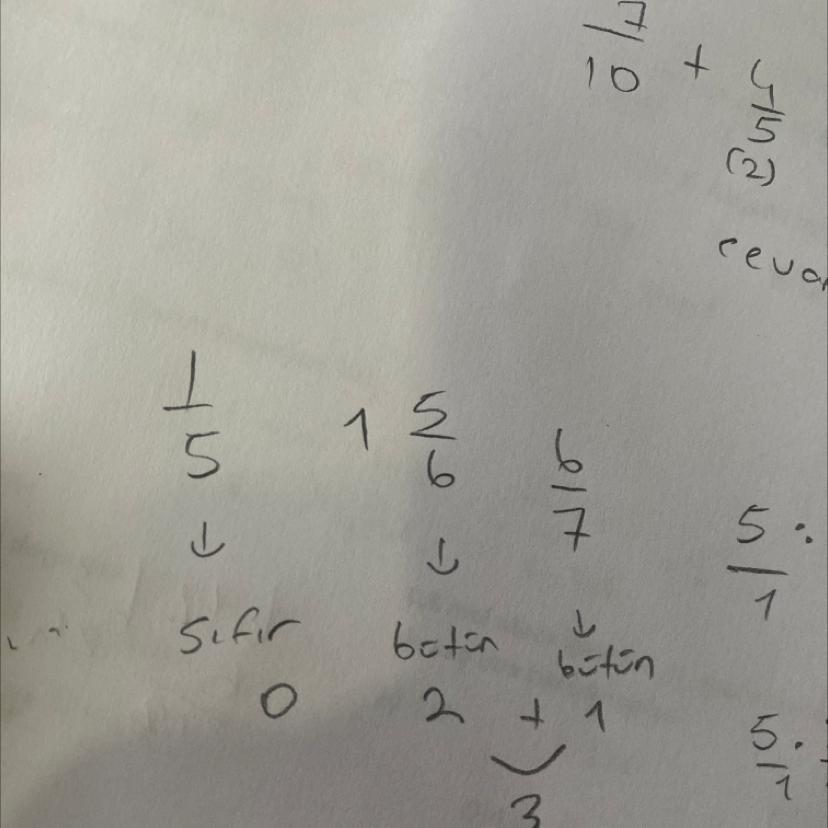 7/10 + 4/5
(2)
ceva
1/5 1 5/6 6/7
↓ ↓ ↓
sıfır bütün bütün
0 2 + 1
3
5/1 :
5/1 :